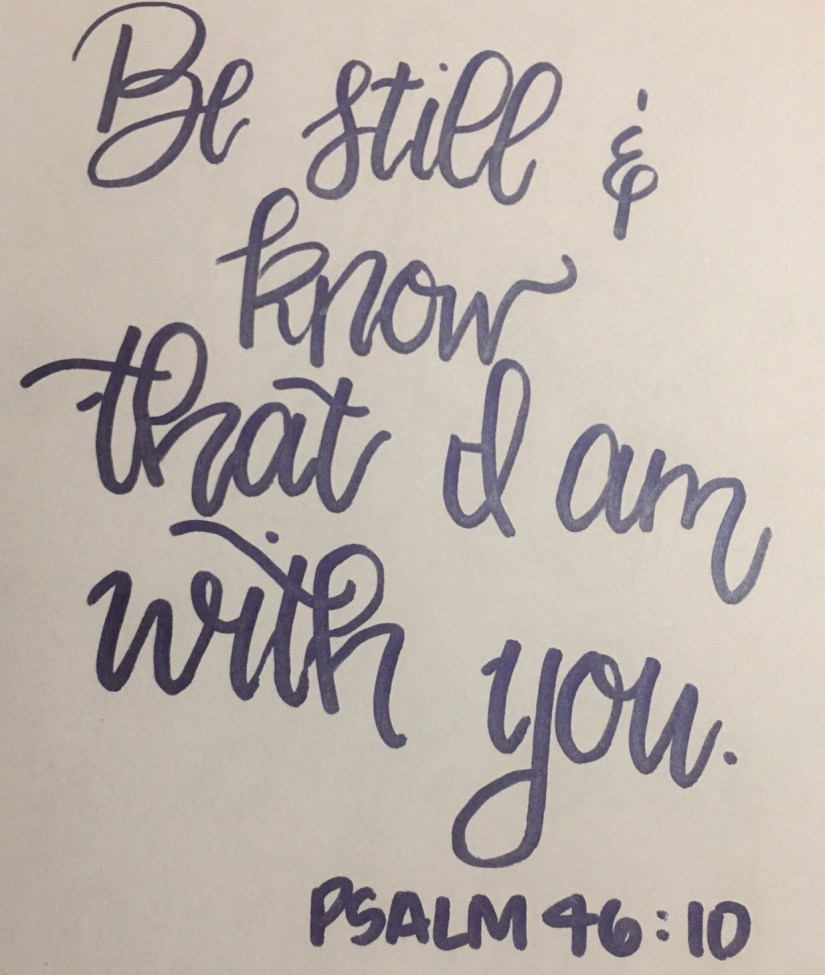 Be still &
know
that I am
with you.
PSALM 46:10